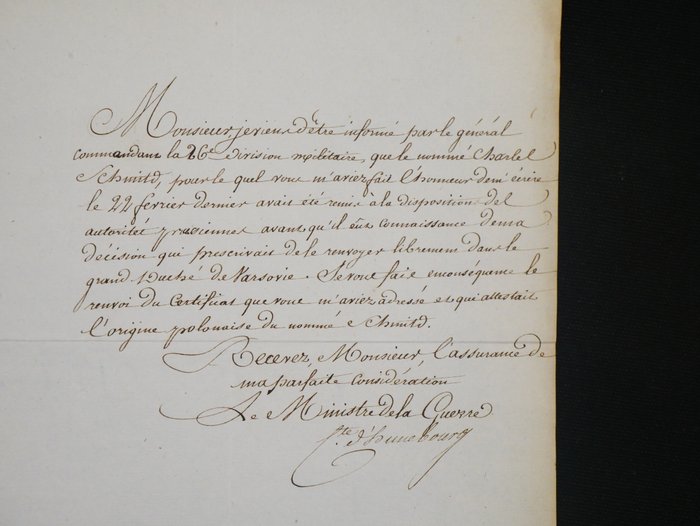 Monsieur, je viens d'être informé par le général
commandant la 26e division militaire, que le nommé Charles
Schmitd, pour le quel vous m'aviez fait l'honneur de m'écrire
le 22 février dernier avait été remis à la disposition des
autorités prussiennes avant qu'il eût connaissance de ma
décision qui prescrivait de le renvoyer librement dans le
grand Duché de Varsovie. Je vous fais en conséquence le
renvoi du Certificat que vous m'aviez adressé et qui attestait
l'origine polonaise du nommé Schmitd.
Recevez, Monsieur, l'assurance de
ma parfaite considération
Le Ministre de la Guerre
Cte d'hunebourg